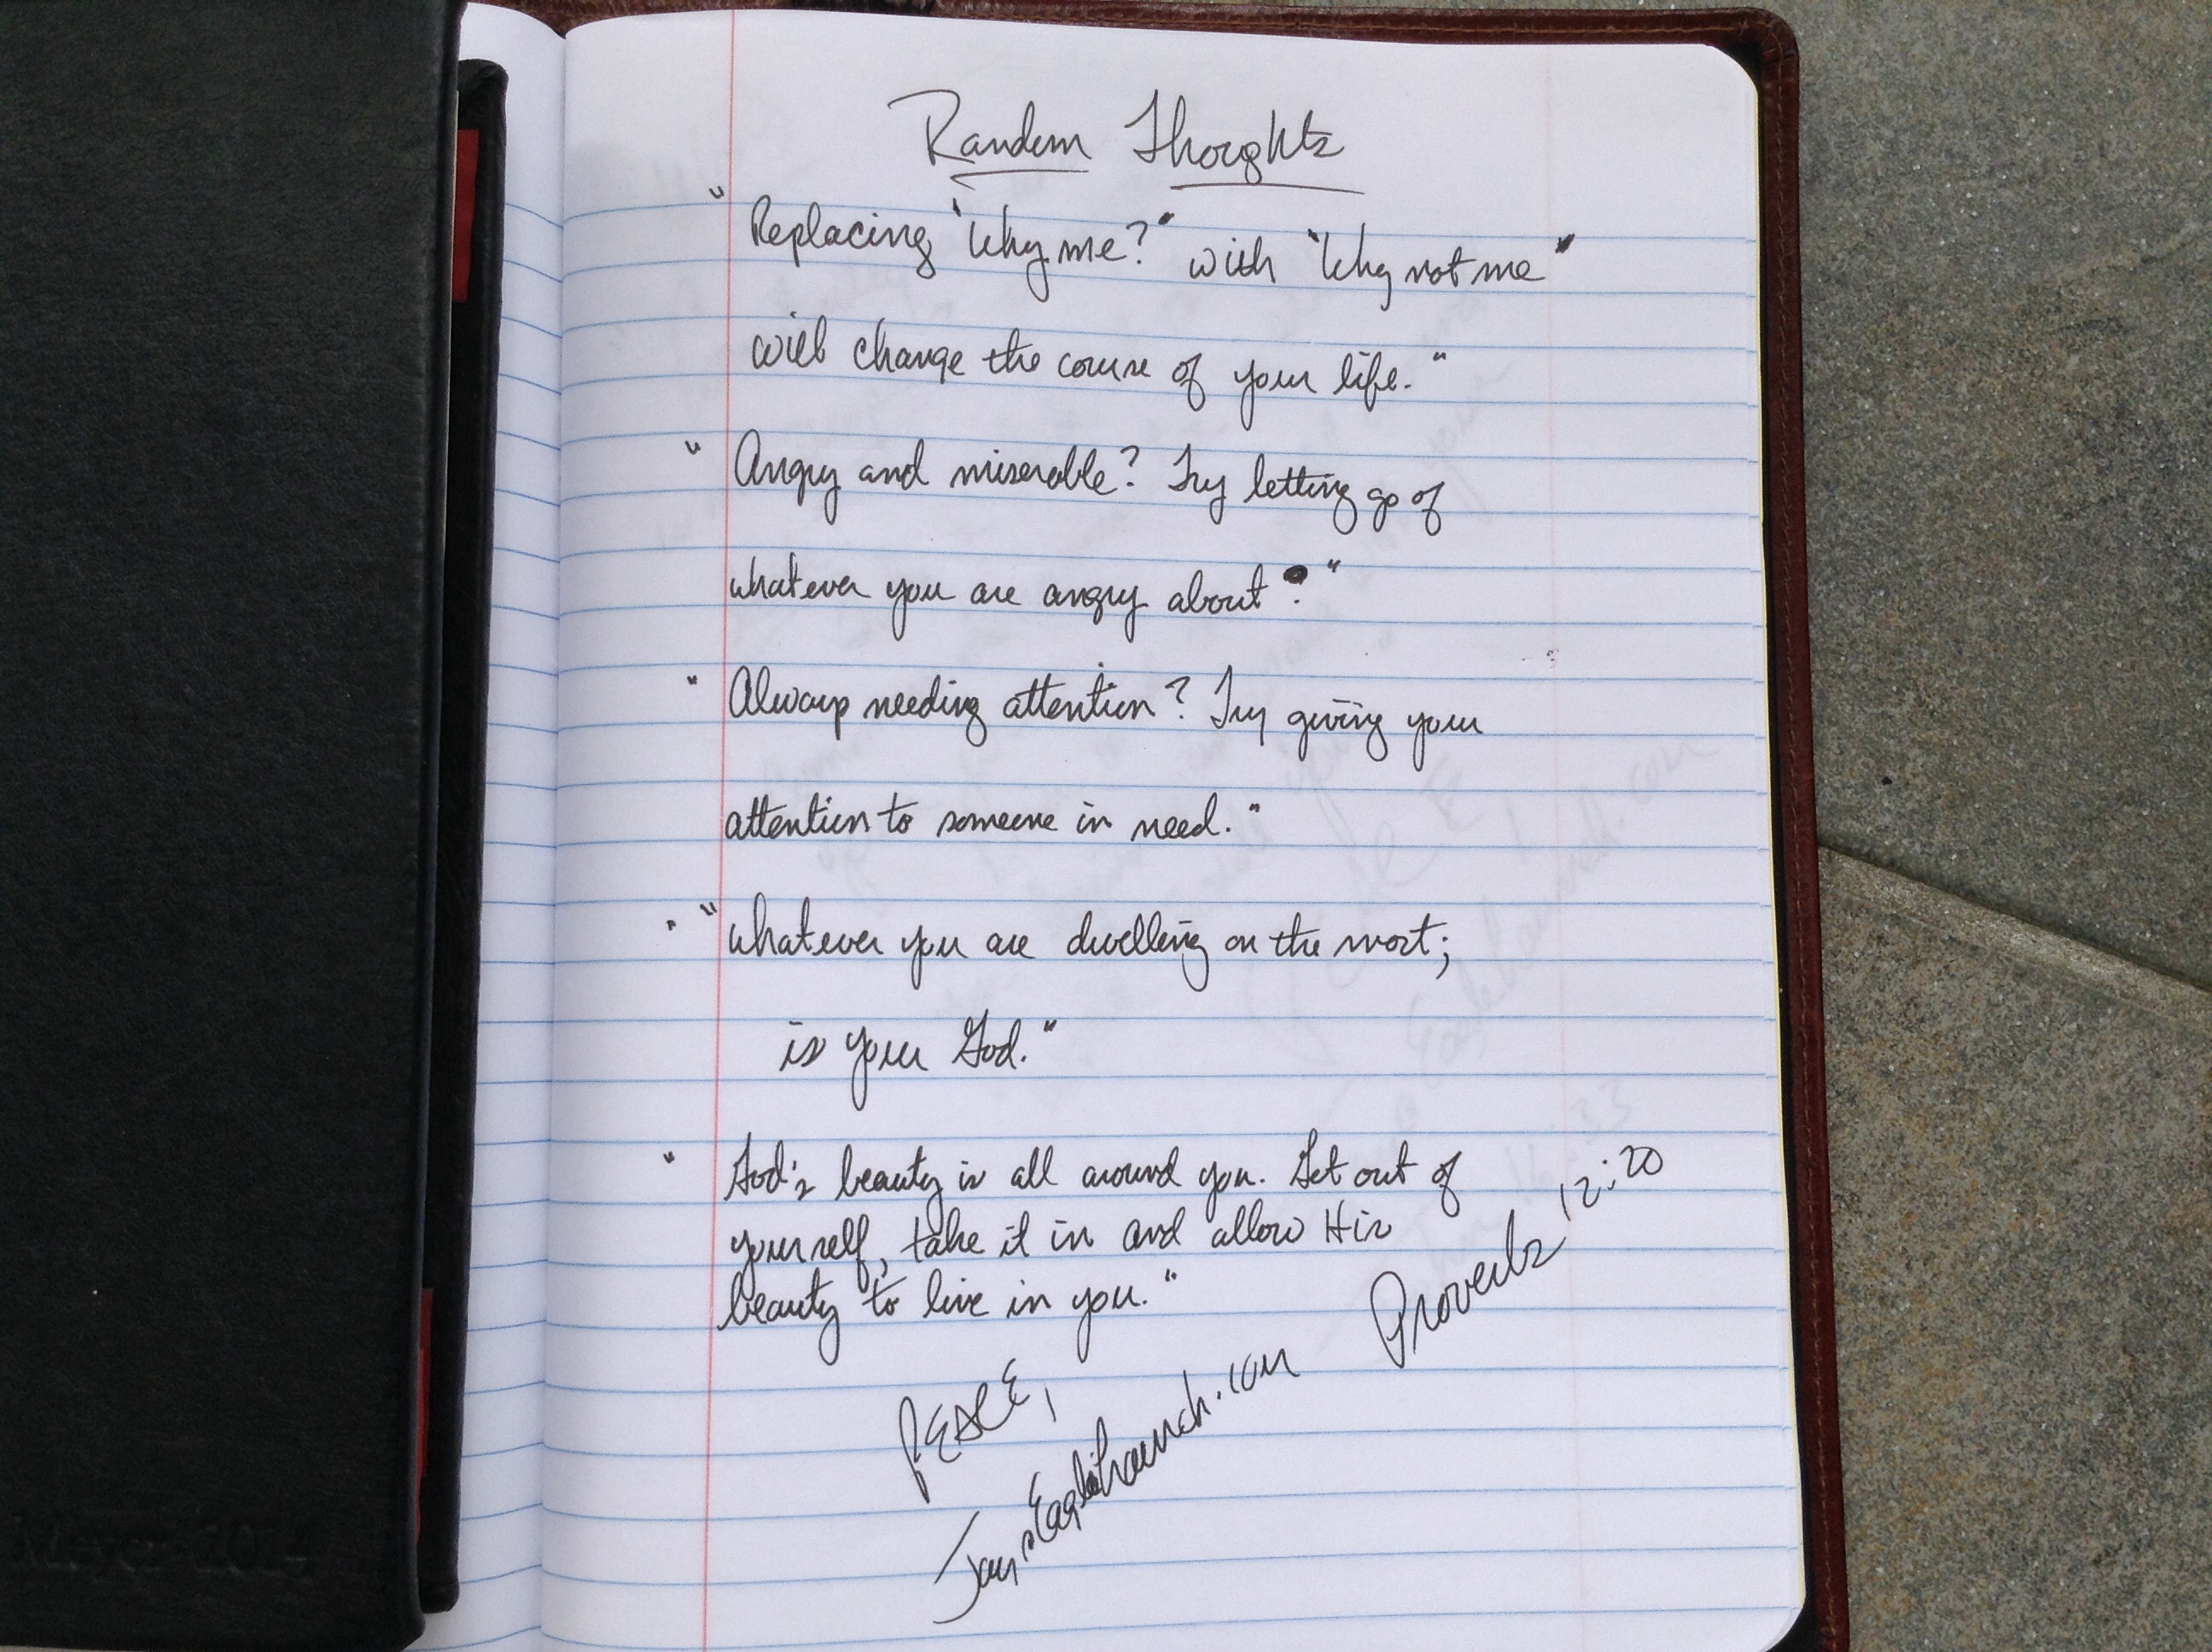 Random Thoughts
"Replacing "Why me?" with "Why not me"
will change the course of your life."
"Angry and miserable? Try letting go of
whatever you are angry about."
"Always needing attention? Try giving your
attention to someone in need."
"Whatever you are dwelling on the most;
is your God."
"God's beauty is all around you. Get out of
yourself, take it in and allow His
beauty to live in you."
Proverbs 12:20
PEACE,
Meyer 2014